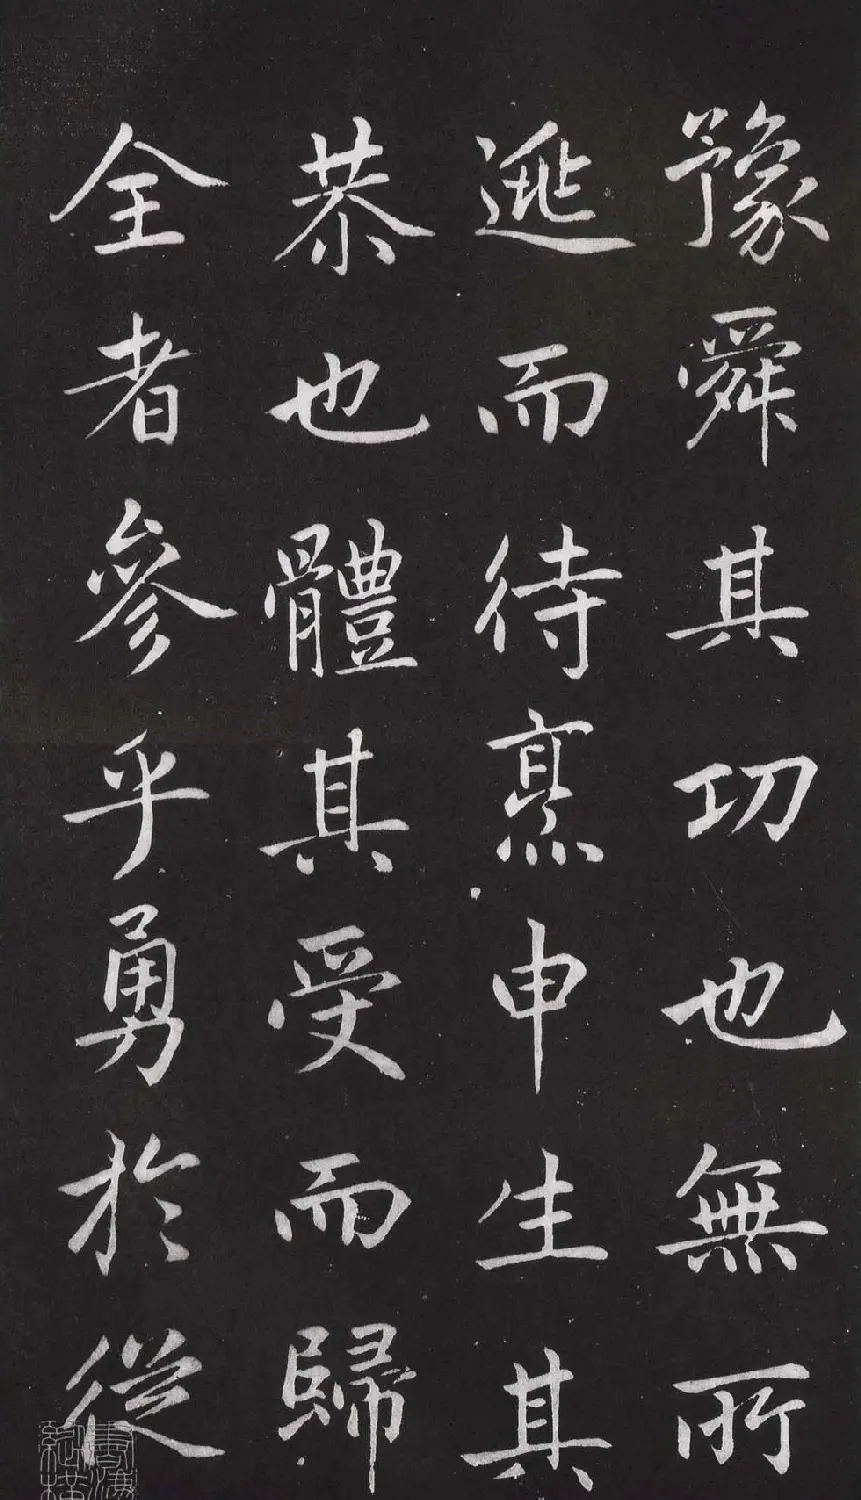 豫舜其功也無所
逃而待烹申生其
恭也體其受而歸
全者參乎勇於從